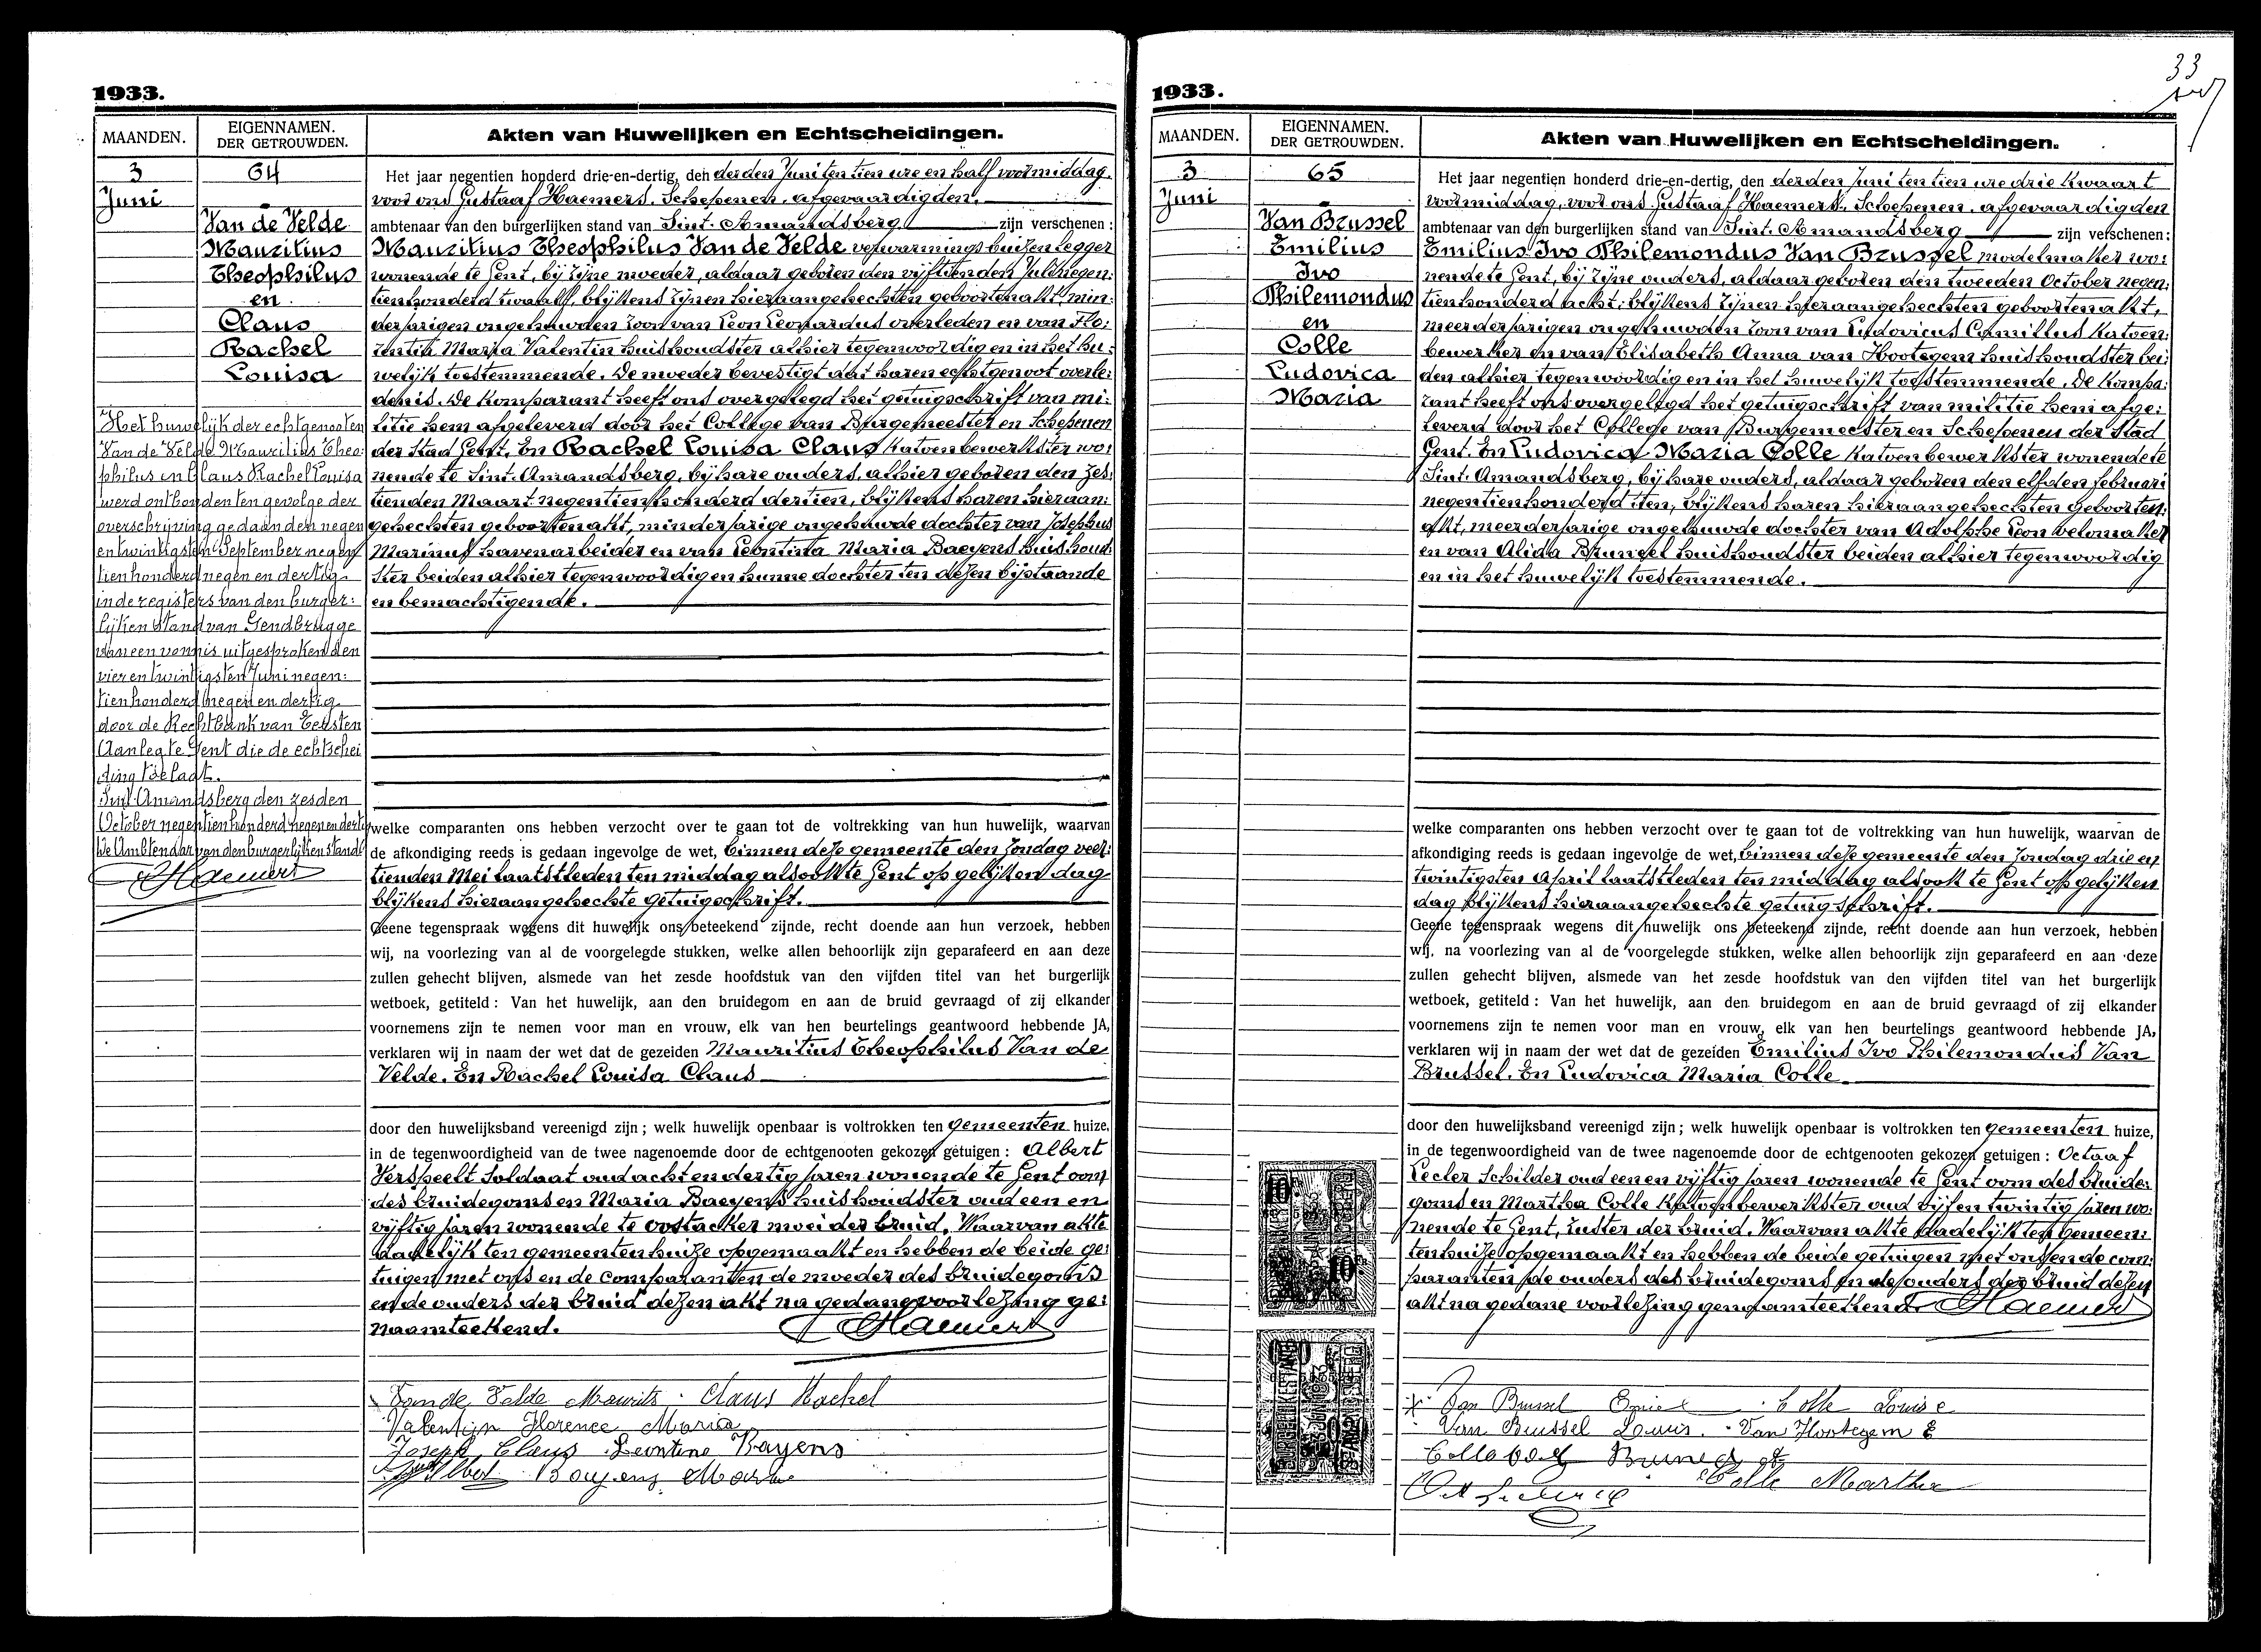 1933.
MAANDEN.
EIGENNAMEN.
DER GETROUWDEN.
Akten van Huwelijken en Echtscheidingen.
3
Juni
64
Van de Velde
Mauritius
Theophilus
en
Claus
Rachel
Louisa
Het huwelijk der echtgenooten
Van de Velde Mauritius Theo:
philus en Claus Rachel Louisa
werd ontbonden ten gevolge der
overschrijving gedaan den negen
en twintigsten September negen
tien honderd negen en dertig
in de registers van den burger:
lijken stand van Gendbrugge
van een vonnis uitgesproken den
vier en twintigsten Juni negen:
tien honderd negen en dertig
door de Rechtbank van Eersten
Aanleg te Gent die de echtschei
ding toelaat.
Sint-Amandsberg den zesden
October negentien honderd negen en dertig
De Ambtenaar van den burgerlijken stand
GHaemers
Het jaar negentien honderd drie-en-dertig, den derden Juni ten tien ure en half voormiddag.
voor ons Gustaaf Haemers, Schepenen, afgevaardigden.
ambtenaar van den burgerlijken stand van Sint-Amandsberg zijn verschenen:
Mauritius Theophilus Van de Velde verwarmingsbuizenlegger
wonende te Gent, bij zijne moeder, aldaar geboren den vijftienden Juli negen:
tienhonderd twaalf, blijkens zijnen hieraangehechten geboortenakt, min:
derjarigen ongehuwden zoon van Leon Leonardus overleden en van Flo:
rentia Maria Valentin huishoudster alhier tegenwoordig en in het hu:
welijk toestemmende. De moeder bevestigt dat haren echtgenoot overle:
den is. De komparant heeft ons overgelegd het getuigschrift van mi:
litie hem afgeleverd door het College van Burgemeester en Schepenen
der Stad Gent. En Rachel Louisa Claus katoenbewerkster wo:
nende te Sint-Amandsberg, bij hare ouders, alhier geboren den zes:
tienden Maart negentienhonderd dertien, blijkens haren hieraan:
gehechten geboortenakt, minderjarige ongehuwde dochter van Josephus
Marinus havenarbeider en van Leontina Maria Baeyens huishoud:
ster beiden alhier tegenwoordig en hunne dochter ten dezen bijstaande
en bemachtigende.
welke comparanten ons hebben verzocht over te gaan tot de voltrekking van hun huwelijk, waarvan
de afkondiging reeds is gedaan ingevolge de wet, binnen deze gemeente den Zondag veer:
tienden Mei laatstleden ten middag alsook te Gent op gelijken dag
blijkens hieraangehechte getuigschrift.
Geene tegenspraak wegens dit huwelijk ons beteekend zijnde, recht doende aan hun verzoek, hebben
wij, na voorlezing van al de voorgelegde stukken, welke allen behoorlijk zijn geparafeerd en aan deze
zullen gehecht blijven, alsmede van het zesde hoofdstuk van den vijfden titel van het burgerlijk
wetboek, getiteld: Van het huwelijk, aan den bruidegom en aan de bruid gevraagd of zij elkander
voornemens zijn te nemen voor man en vrouw, elk van hen beurtelings geantwoord hebbende JA,
verklaren wij in naam der wet dat de gezeiden Mauritius Theophilus Van de
Velde. En Rachel Louisa Claus
door den huwelijksband vereenigd zijn; welk huwelijk openbaar is voltrokken ten gemeenten huize,
in de tegenwoordigheid van de twee nagenoemde door de echtgenooten gekozen getuigen: Albert
Verspeelt Soldaat oud acht en dertig jaren wonende te Gent oom
des bruidegoms en Maria Baeyens huishoudster oud een en
vijftig jaren wonende te Oostacker moei der bruid. Waarvan akte
dadelijk ten gemeentenhuize opgemaakt en hebben de beide ge:
tuigen met ons en de comparanten de moeder des bruidegoms
en de ouders der bruid dezen akt na gedane voorlezing ge:
naamteekend. GHaemers
Van de Velde Maurits. Claus Rachel
Valentijn Florence Maria
Joseph Claus Leontine Bayens
Albert Bayens Maria
33
1933.
MAANDEN.
EIGENNAMEN.
DER GETROUWDEN.
Akten van Huwelijken en Echtscheidingen.
3
Juni
65
Van Brussel
Emilius
Ivo
Philemondus
en
Colle
Ludovica
Maria
Het jaar negentien honderd drie-en-dertig, den derden Juni ten tien ure drie kwaart
voormiddag, voor ons Gustaaf Haemers, Schepenen, afgevaardigden
ambtenaar van den burgerlijken stand van Sint-Amandsberg zijn verschenen:
Emilius Ivo Philemondus Van Brussel modelmaker wo:
nende te Gent, bij zijne ouders, aldaar geboren den tweeden October negen:
tienhonderd acht; blijkens zijnen hieraangehechten geboortenakt,
meerderjarigen ongehuwden zoon van Ludovicus Camillus katoen:
bewerker en van Elisabeth Anna van Hootegem huishoudster bei:
den alhier tegenwoordig en in het huwelijk toestemmende. De kompa:
rant heeft ons overgelegd het getuigschrift van militie hem afge:
leverd door het College van Burgemeester en Schepenen der Stad
Gent. En Ludovica Maria Colle katoenbewerkster wonende te
Sint-Amandsberg, bij hare ouders, aldaar geboren den elfden februari
negentienhonderd tien, blijkens haren hieraangehechten geboorten:
akt, meerderjarige ongehuwde dochter van Adolphe Leon velomaker
en van Alida Bruneel huishoudster beiden alhier tegenwoordig
en in het huwelijk toestemmende.
welke comparanten ons hebben verzocht over te gaan tot de voltrekking van hun huwelijk, waarvan de
afkondiging reeds is gedaan ingevolge de wet, binnen deze gemeente den Zondag drie en
twintigsten April laatstleden ten middag alsook te Gent op gelijken
dag blijkens hieraangehechte getuigschrift.
Geene tegenspraak wegens dit huwelijk ons beteekend zijnde, recht doende aan hun verzoek, hebben
wij, na voorlezing van al de voorgelegde stukken, welke allen behoorlijk zijn geparafeerd en aan deze
zullen gehecht blijven, alsmede van het zesde hoofdstuk van den vijfden titel van het burgerlijk
wetboek, getiteld: Van het huwelijk, aan den bruidegom en aan de bruid gevraagd of zij elkander
voornemens zijn te nemen voor man en vrouw, elk van hen beurtelings geantwoord hebbende JA,
verklaren wij in naam der wet dat de gezeiden Emilius Ivo Philemondus Van
Brussel. En Ludovica Maria Colle
door den huwelijksband vereenigd zijn; welk huwelijk openbaar is voltrokken ten gemeenten huize,
in de tegenwoordigheid van de twee nagenoemde door de echtgenooten gekozen getuigen: Octaaf
Lecler Schilder oud een en vijftig jaren wonende te Gent oom des bruide:
goms en Martha Colle katoenbewerkster oud vijf en twintig jaren wo:
nende te Gent, zuster der bruid. Waarvan akte dadelijk ten gemeen:
tenhuize opgemaakt en hebben de beide getuigen met ons en de com:
paranten de ouders des bruidegoms en de ouders der bruid dezen
akt na gedane voorlezing genaamteekend. GHaemers
Van Brussel Emiel Colle Louise
Van Brussel Louis. Van Hootegem E
Colle Martha